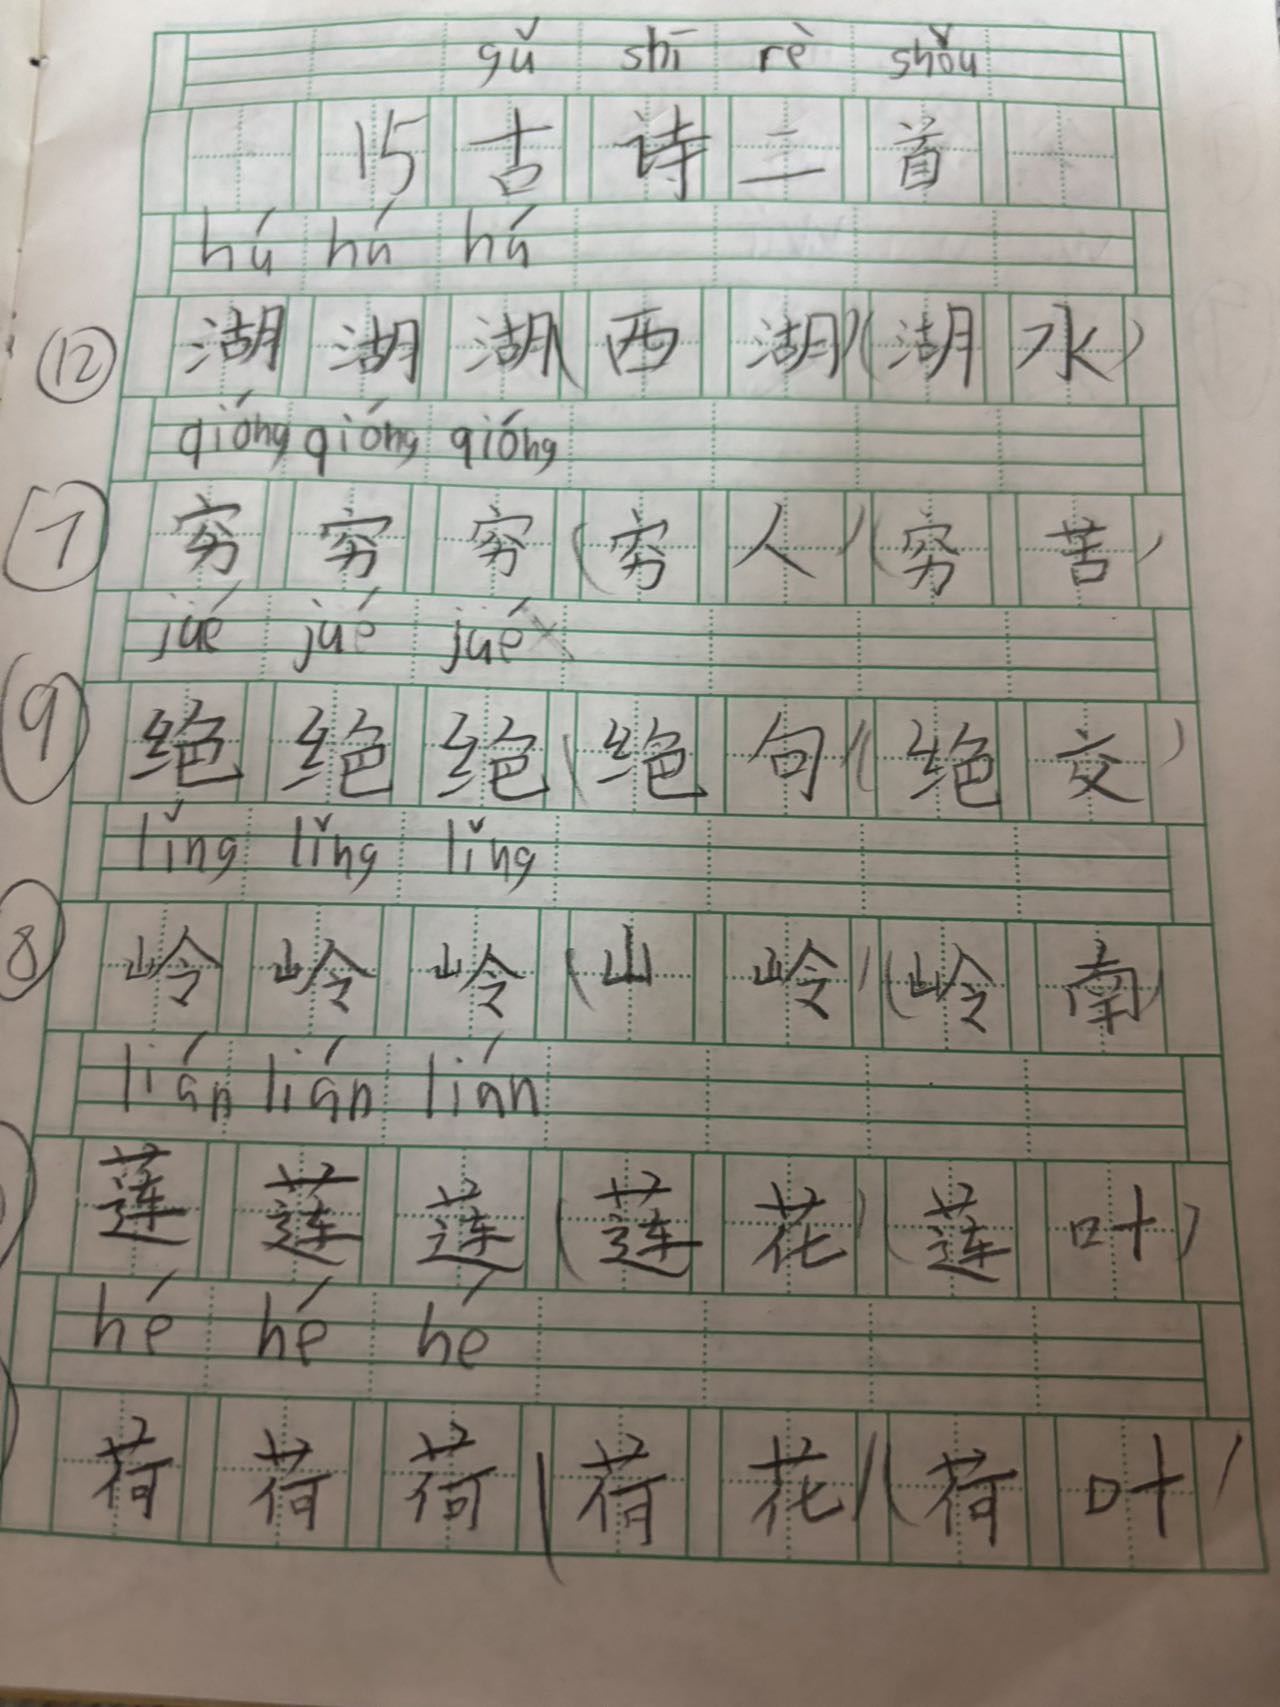 gǔ shī rè shǒu
15 古诗二首
hú hú hú
⑫ 湖湖湖(西湖)(湖水)
qióng qióng qióng
⑦ 穷穷穷(穷人)(穷苦)
jué jué jué
⑨ 绝绝绝(绝句)(绝交)
lǐng lǐng lǐng
⑧ 岭岭岭(山岭)(岭南)
lián lián lián
莲莲莲(莲花)(莲叶)
hé hé hé
荷荷荷(荷花)(荷叶)